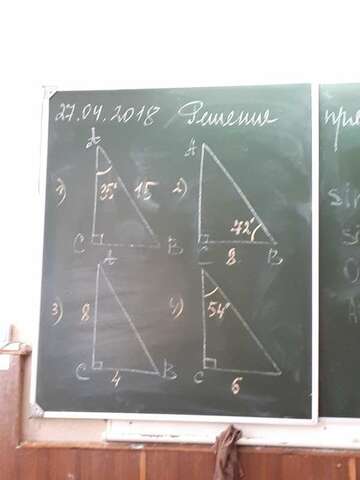 27.04.2018 Решение пря
1) A 35° 15 C B
2) A 72° C 8 B
3) A 8 C 4 B
4) 54° C 6
sin
si
C
A